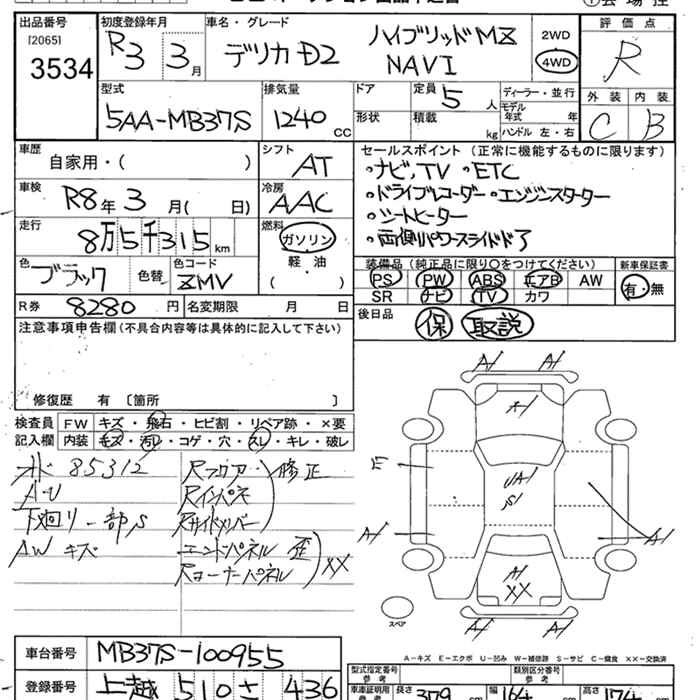 出品番号 初度登録年月 車名・グレード 評価点
[2065] R3年3月 デリカD2 ハイブリッドMZ 2WD R
3534 NAVI 4WD
型式 排気量 ドア 定員 5人 ディーラー・並行 外装 内装
5AA-MB37S 1240cc 形状 積載 kg モデル年式 年 C B
ハンドル 左・右
車歴 シフト セールスポイント (正常に機能するものに限ります)
自家用・( ) AT ・ナビ,TV ・ETC
車検 冷房 ・ドライブレコーダー・エンジンスターター
R8年3月( 日) AAC ・シートヒーター
走行 燃料 ・両側パワースライドドア
8万5千315km ガソリン
色 色替 色コード 軽・油 装備品(純正品に限り○をつけてください) 新車保証書
ブラック ZMV ( ) PS PW ABS エアB AW 有・無
R券 8280円 名変期限 月 日 SR ナビ TV カワ
注意事項申告欄(不具合内容等は具体的に記入して下さい) 後日品 保 取説
修復歴 有 〔箇所 〕
検査員 FW キズ・飛石・ヒビ割・リペア跡・×要
記入欄 内装 キズ・汚レ・コゲ・穴・スレ・キレ・破レ
85312 Rフロア 修正
A・U Rインパネ
下廻り一部S Rサイドメンバー
AWキズ エンドパネル 歪
Rコーナーパネル XX
A1 A1
A1
E UA1
S1
A1 A1
A1
XX
A1 A1
スペア
A-キズ E-エクボ U-凹み W-補修跡 S-サビ C-腐食 XX-交換済
車台番号 MB37S-100955 型式指定番号 類別区分番号
登録番号 上越 510 さ 436 車庫証明用参考 長さ 379 cm 幅 164 cm 高さ 174 cm